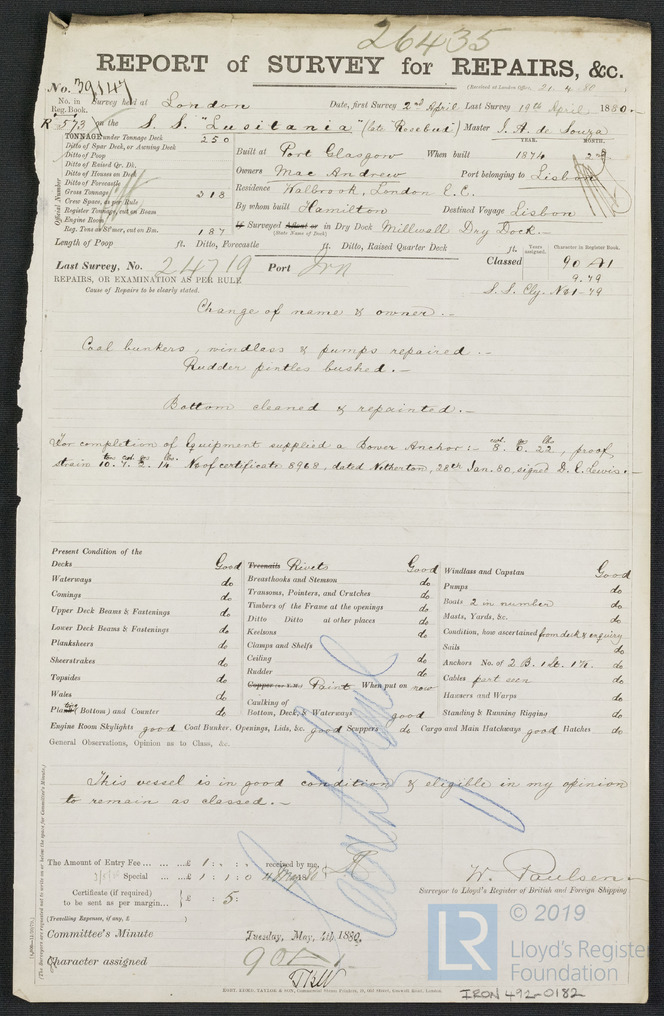 26435
REPORT of SURVEY for REPAIRS, &c.
(Received at London Office, 21.4.80)
No. 39147
No. in Reg. Book. Survey held at London Date, first Survey 2nd April Last Survey 19th April, 1880.-
R 573 on the S. S. "Lusitania" (late Rosebud) Master J. A. de Souza
TONNAGE under Tonnage Deck 250
Ditto of Spar Deck, or Awning Deck
Ditto of Poop
Ditto of Raised Qr. Dk.
Ditto of Houses on Deck
Ditto of Forecastle
Gross Tonnage 318
Crew Space, as per Rule
Register Tonnage, cut on Beam
Engine Room
Reg. Ton. as St'mer, cut on Bm. 187
Official Number
YEAR. MONTH.
Built at Port Glasgow When built 1874 2
Owners Mac Andrew Port belonging to Lisbon
Residence Walbrook, London E.C.
By whom built Hamilton Destined Voyage Lisbon
If Surveyed Afloat or in Dry Dock Millwall Dry Dock.-
(State Name of Dock)
Length of Poop ft. Ditto, Forecastle ft. Ditto, Raised Quarter Deck ft.
Years assigned. Character in Register Book.
Last Survey, No. 24719 Port Irn Classed 90 A1
9.79
S. S. Cly. No1-79
REPAIRS, OR EXAMINATION AS PER RULE
Cause of Repairs to be clearly stated.
Change of name & owner.-
Coal bunkers, windlass & pumps repaired.-
Rudder pintles bushed.-
Bottom cleaned & repainted.-
For completion of Equipment supplied a Bower Anchor:- cwt. 8. qrs 0. lbs 22, proof
strain ton 10. cwt. 7. qrs 2. lbs. 14 No of certificate 8968, dated Netherton, 28th Jan. 80 signed D. E. Lewis.-
Present Condition of the
Decks Good
Waterways do
Comings do
Upper Deck Beams & Fastenings do
Lower Deck Beams & Fastenings do
Planksheers do
Sheerstrakes do
Topsides do
Wales do
Plating (Bottom) and Counter do
Treenails Rivets Good
Breasthooks and Stemson do
Transoms, Pointers, and Crutches do
Timbers of the Frame at the openings do
Ditto Ditto at other places do
Keelsons do
Clamps and Shelfs do
Ceiling do
Rudder do
Copper or Y.M. Paint When put on now
Caulking of Bottom, Deck, & Waterways good
Windlass and Capstan Good
Pumps do
Boats 2 in number do
Masts, Yards, &c. do
Condition, how ascertained from deck & enquiry
Sails do
Anchors No. of 2 B. 1 St. 1 K. do
Cables part seen do
Hawsers and Warps do
Standing & Running Rigging do
Engine Room Skylights good Coal Bunker, Openings, Lids, &c. good Scuppers do Cargo and Main Hatchways good Hatches do
General Observations, Opinion as to Class, &c.
This vessel is in good condition & eligible in my opinion
to remain as classed.-
The Amount of Entry Fee ... ... £ 1 : : received by me,
Special ... £ 1 : 1 : 0
Certificate (if required) to be sent as per margin... £ : 5:
(Travelling Expenses, if any, £ )
W. Paulsen
Surveyor to Lloyd's Register of British and Foreign Shipping
Committee's Minute Tuesday, May, 4th, 1880.
Character assigned 90 A 1
© 2019
LR
Lloyd's Register
Foundation
IRON 492-0182